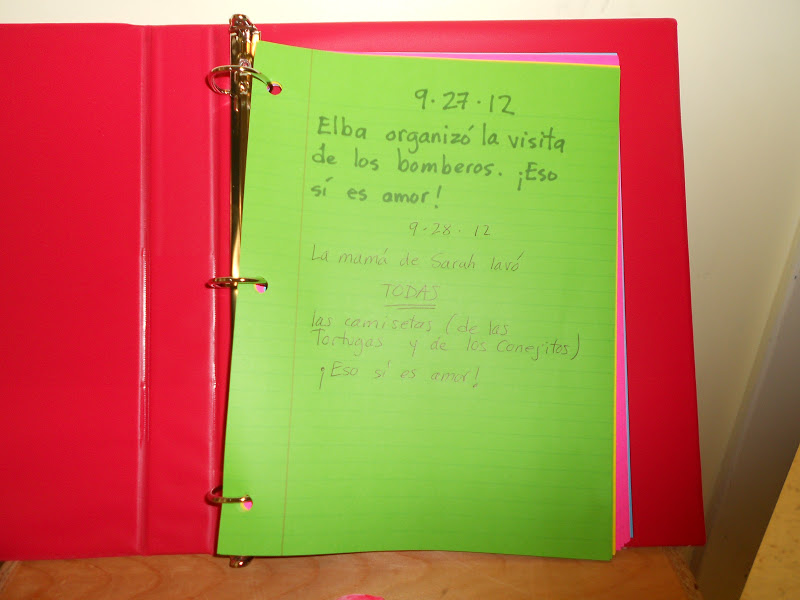 9.27.12
Elba organizó la visita
de los bomberos. ¡Eso
sí es amor!
9.28.12
La mamá de Sarah lavó
TODAS
las camisetas (de las
Tortugas y de los Conejitos)
¡Eso sí es amor!